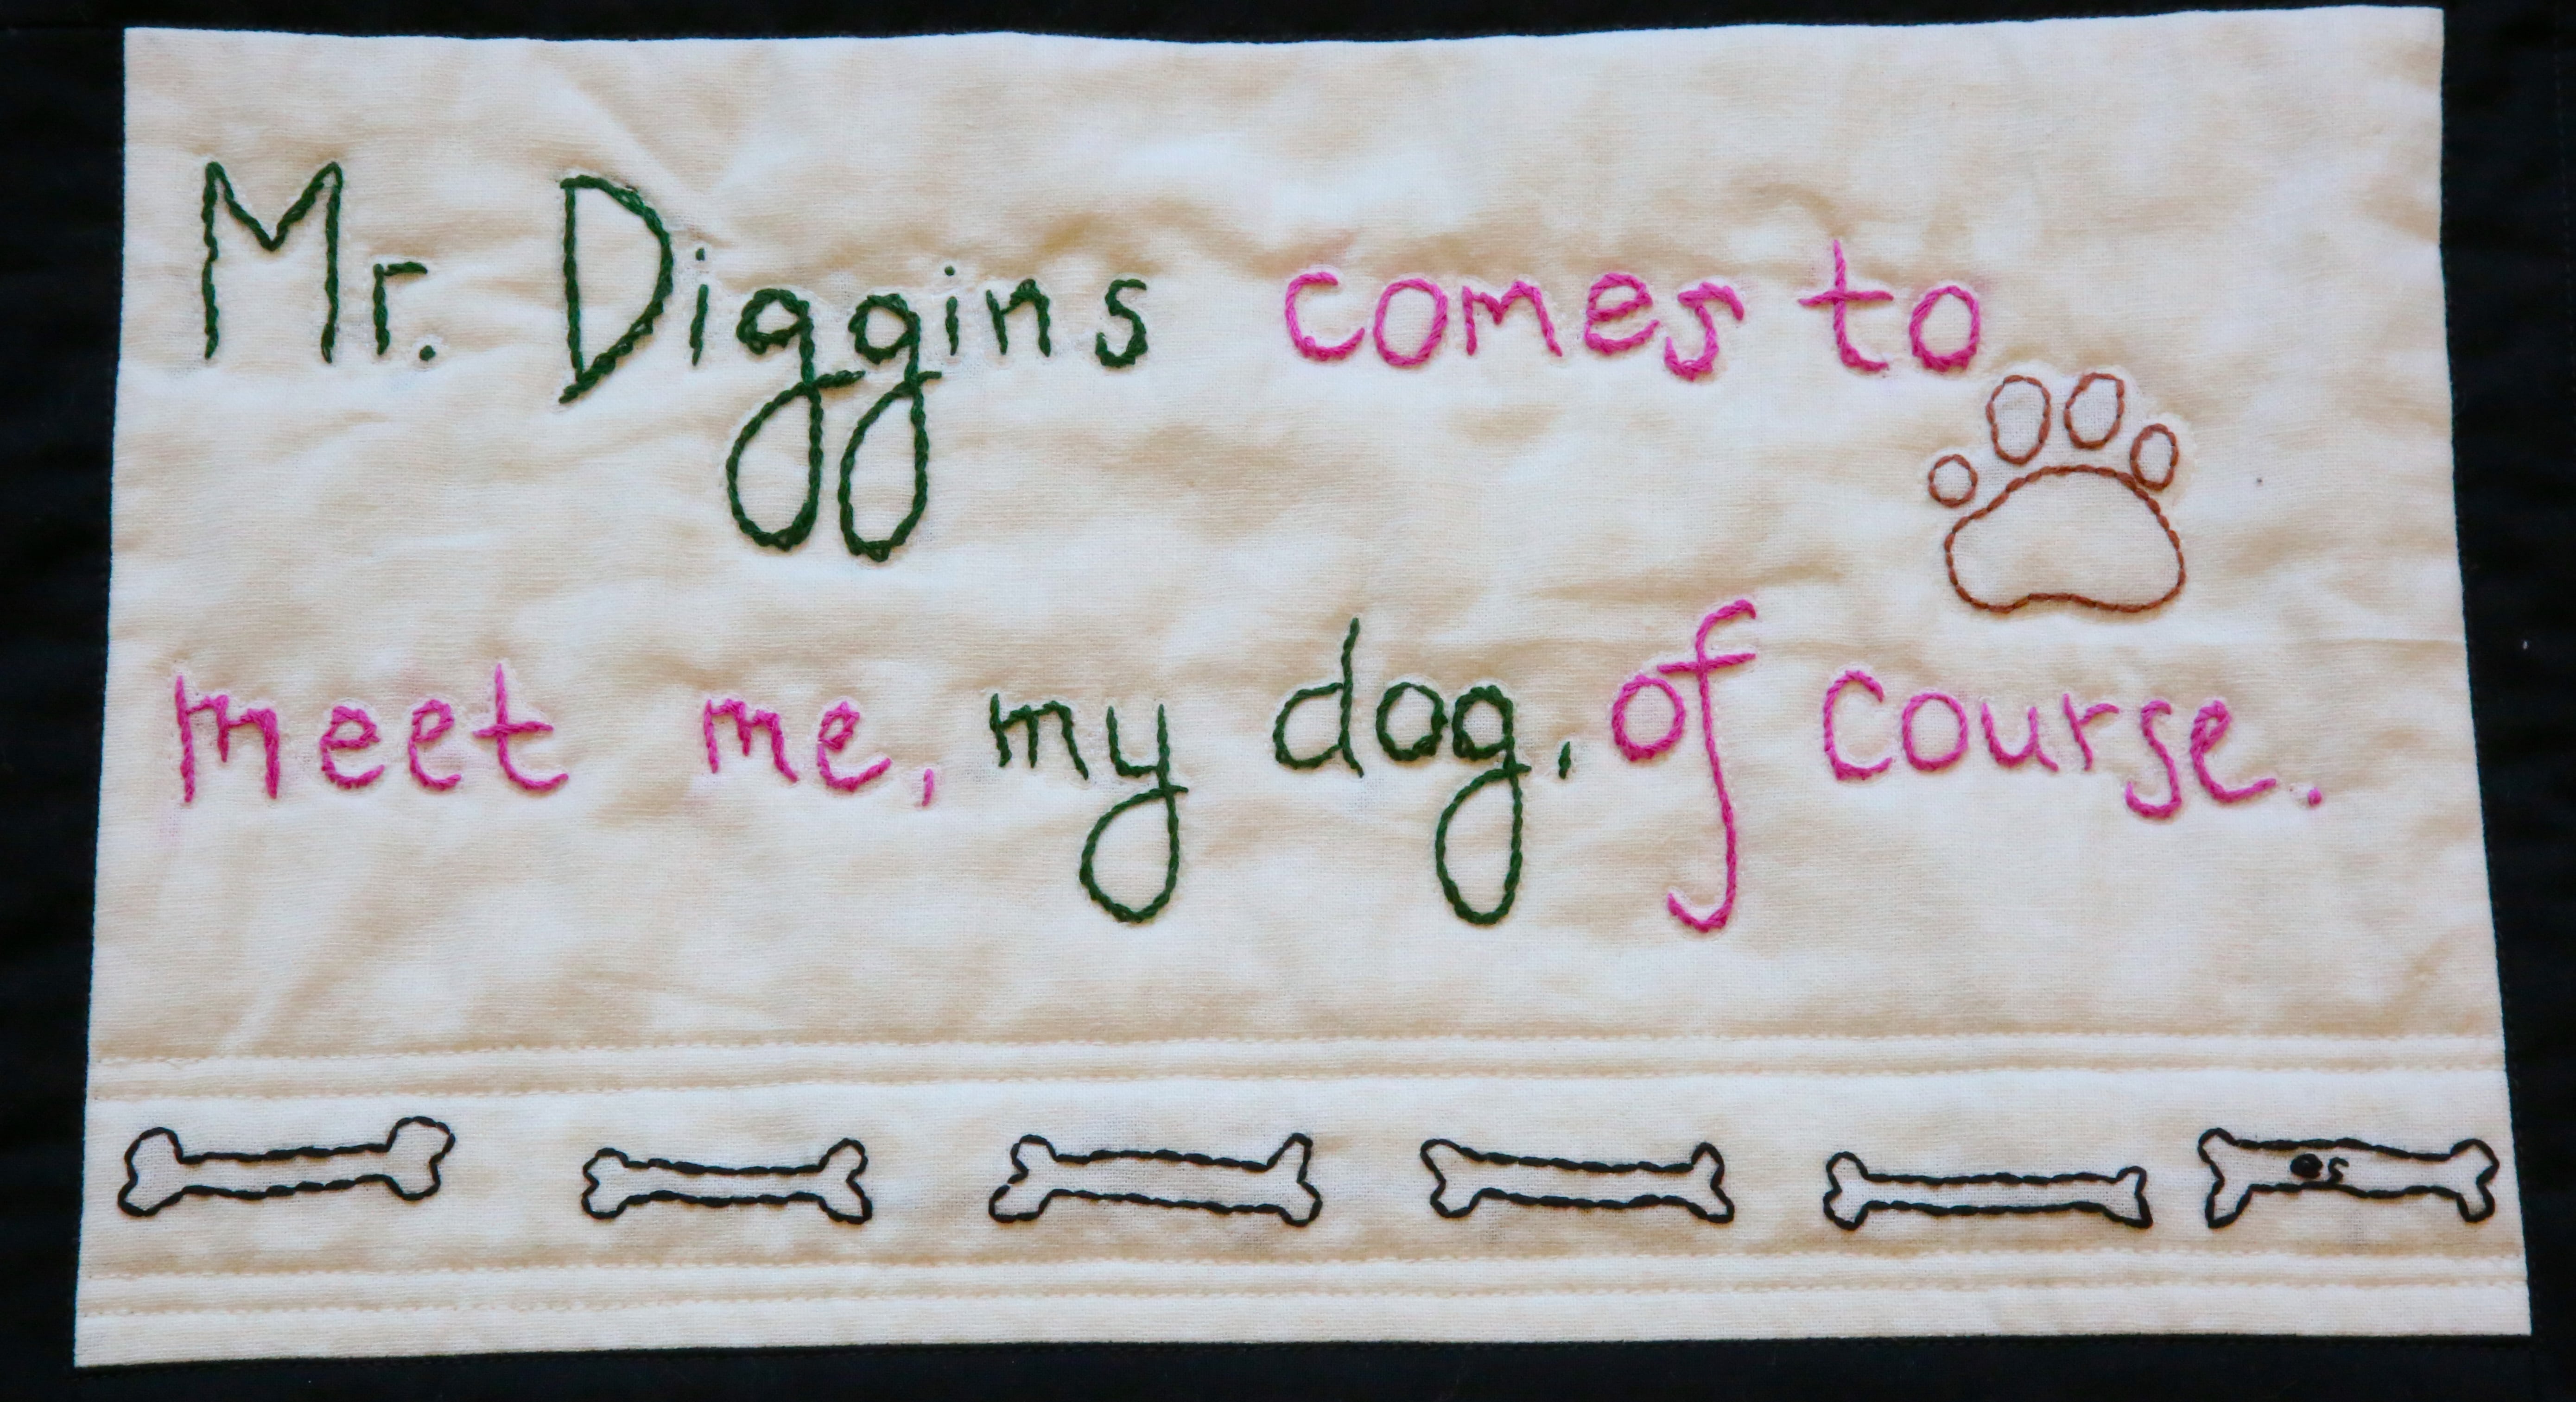 Mr. Diggins comes to
meet me, my dog, of course.